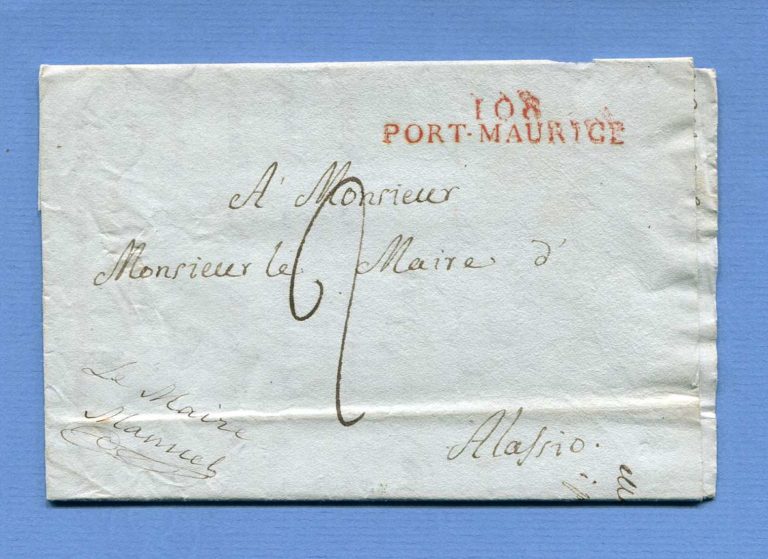 108
PORT-MAURICE
A' Monsieur
Monsieur le Maire d'
Le Maire
Manuel
Alassio.